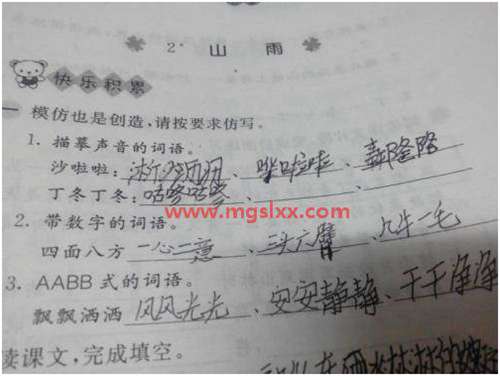 2* 山 雨
快乐积累
一 模仿也是创造,请按要求仿写。
1. 描摹声音的词语。
沙啦啦: 哗啦啦、轰隆隆
丁冬丁冬: 咕咚咕咚、
www.mgslxx.com
2. 带数字的词语。
四面八方 一心二意、三头六臂、九牛一毛
3. AABB 式的词语。
飘飘洒洒 风风光光、安安静静、干干净净
读课文,完成填空。